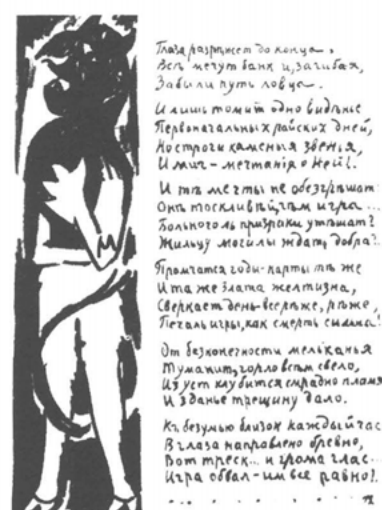 Глаза разрѣжет до конца.
Всѣ мечут банк и, загибая,
Забыли путь ловца.
И лишь томит одно видѣнье
Первоначальных райских дней,
Но строги каменныя звенья,
И миг-мечтанія о Ней!.
И тѣ мечты не обезгрѣшат
Онѣ тоскливѣй, чѣм игра...
Больного ль призраки утѣшат?
Жильцу могилы ждать добра?.
Промчатся годы-карты тѣ же
И та же злата желтизна,
Сверкает день-все рѣже, рѣже,
Печаль игры, как смерть сильна!
От безконечности мельканья
Туманит, горло всѣм свело,
Из уст клубится смрадно пламя
И зданье трещину дало.
Къ безумью близок каждый час
В глаза направлено бревно,
Вот треск... и грома глас...
Игра обвал-им все равно!.